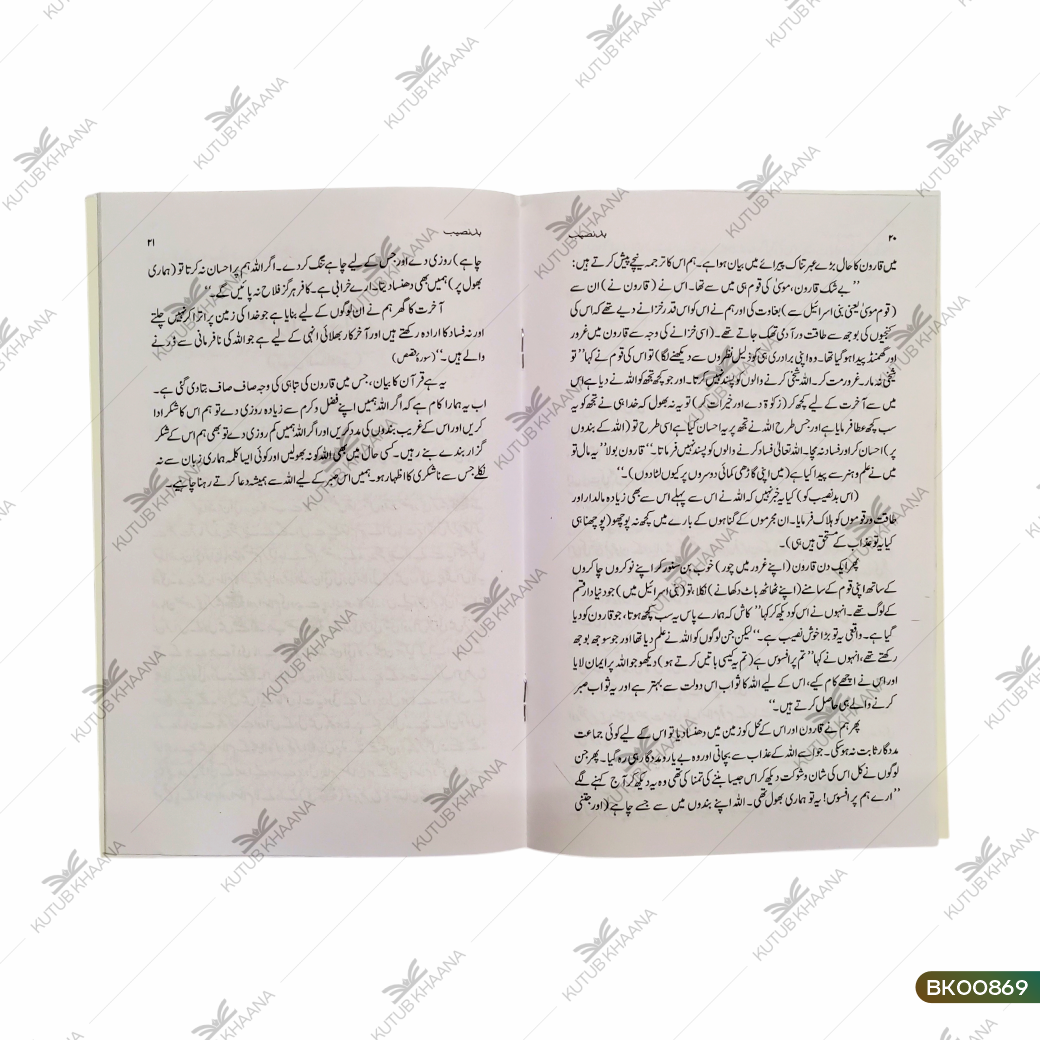 ۲۰
بدنصیب
میں قارون کا حال بڑے عبرتناک پیرائے میں بیان ہوا ہے۔ ہم اس کا ترجمہ نیچے پیش کرتے ہیں:
’’بے شک قارون، موسیٰ کی قوم ہی میں سے تھا۔ اس نے (قارون نے) ان سے
(قوم موسیٰ یعنی بنی اسرائیل سے) بغاوت کی اور ہم نے اس کو اس قدر خزانے دیے تھے کہ اس کی
کنجیوں کی بوجھ سے طاقت ور آدمی تھک جاتے تھے۔ (اسی خزانے کی وجہ سے قارون میں غرور
اور گھمنڈ پیدا ہو گیا تھا۔ وہ اپنی برادری ہی کو ذلیل نظروں سے دیکھنے لگا) تو اس کی قوم نے کہا ’’تو
شیخی نہ مار۔ غرور مت کر۔ اللہ شیخی کرنے والوں کو پسند نہیں کرتا۔ اور جو کچھ تجھ کو اللہ نے دیا ہے اس
میں سے آخرت کے لیے کچھ کر (زکوٰۃ دے اور خیرات کر) تو یہ نہ بھول کہ خدا ہی نے تجھ کو یہ
سب کچھ عطا فرمایا ہے اور جس طرح اللہ نے تجھ پر یہ احسان کیا ہے اسی طرح تو (اللہ کے بندوں
پر) احسان کر اور فساد نہ مچا۔ اللہ تعالیٰ فساد کرنے والوں کو پسند نہیں فرماتا۔‘‘ قارون بولا’’یہ مال تو
میں نے علم و ہنر سے پیدا کیا ہے (میں اپنی گاڑھی کمائی دوسروں پر کیوں لٹا دوں)۔‘‘
(اس بدنصیب کو) کیا یہ خبر نہیں کہ اللہ نے اس سے پہلے اس سے بھی زیادہ مالدار اور
طاقت ور قوموں کو ہلاک فرمایا۔ ان مجرموں کے گناہوں کے بارے میں کچھ نہ پوچھو (پوچھنا ہی
کیا یہ تو عذاب کے مستحق ہیں ہی)۔
پھر ایک دن قارون (اپنے غرور میں چور) خوب بن سنور کر اپنے نوکروں چاکروں
کے ساتھ اپنی قوم کے سامنے (اپنے ٹھاٹھ باٹ دکھانے) نکلا، تو (بنی اسرائیل میں) جو دنیا دار قسم
کے لوگ تھے۔ انہوں نے اس کو دیکھ کر کہا ’’کاش کہ ہمارے پاس یہ سب کچھ ہوتا، جو قارون کو دیا
گیا ہے۔ واقعی یہ تو بڑا خوش نصیب ہے۔‘‘ لیکن جن لوگوں کو اللہ نے علم دیا تھا اور جو سوجھ بوجھ
رکھتے تھے، انہوں نے کہا ’’تم پر افسوس ہے (تم یہ کیسی باتیں کرتے ہو) دیکھو جو اللہ پر ایمان لایا
اور اس نے اچھے کام کیے، اس کے لیے اللہ کا ثواب اس دولت سے بہتر ہے اور یہ ثواب صبر
کرنے والے ہی حاصل کرتے ہیں۔‘‘
پھر ہم نے قارون اور اس کے محل کو زمین میں دھنسا دیا تو اس کے لیے کوئی جماعت
مددگار ثابت نہ ہو سکی۔ جو اسے اللہ کے عذاب سے بچاتی اور وہ بے یار و مددگار ہی رہ گیا۔ پھر جن
لوگوں نے کل اس کی شان و شوکت دیکھ کر اس جیسا بننے کی تمنا کی تھی وہ یہ دیکھ کر آج کہنے لگے
’’ارے ہم پر افسوس! یہ تو ہماری بھول تھی۔ اللہ اپنے بندوں میں سے جسے چاہے (اور جتنی
بدنصیب
۲۱
چاہے) روزی دے اور جس کے لیے چاہے تنگ کر دے۔ اگر اللہ ہم پر احسان نہ کرتا تو (ہماری
بھول پر) ہمیں بھی دھنسا دیتا۔ ارے خرابی ہے۔ کافر ہرگز فلاح نہ پائیں گے۔‘‘
آخرت کا گھر ہم نے ان لوگوں کے لیے بنایا ہے جو خدا کی زمین پر اترا کر نہیں چلتے
اور نہ فساد کا ارادہ رکھتے ہیں اور آخر کار بھلائی انہی کے لیے ہے جو اللہ کی نافرمانی سے ڈرنے
والے ہیں۔‘‘ (سورۂ قصص)
یہ ہے قرآن کا بیان، جس میں قارون کی تباہی کی وجہ صاف صاف بتا دی گئی ہے۔
اب یہ ہمارا کام ہے کہ اگر اللہ ہمیں اپنے فضل و کرم سے زیادہ روزی دے تو ہم اس کا شکر ادا
کریں اور اس کے غریب بندوں کی مدد کریں اور اگر اللہ ہمیں کم روزی دے تو بھی ہم اس کے شکر
گزار بندے بنے رہیں۔ کسی حال میں بھی اللہ کو نہ بھولیں اور کوئی ایسا کلمہ ہماری زبان سے نہ
نکلے جس سے ناشکری کا اظہار ہو۔ ہمیں اس صبر کے لیے اللہ سے ہمیشہ دعا کرتے رہنا چاہیے۔
KUTUB KHAANA
BK00869